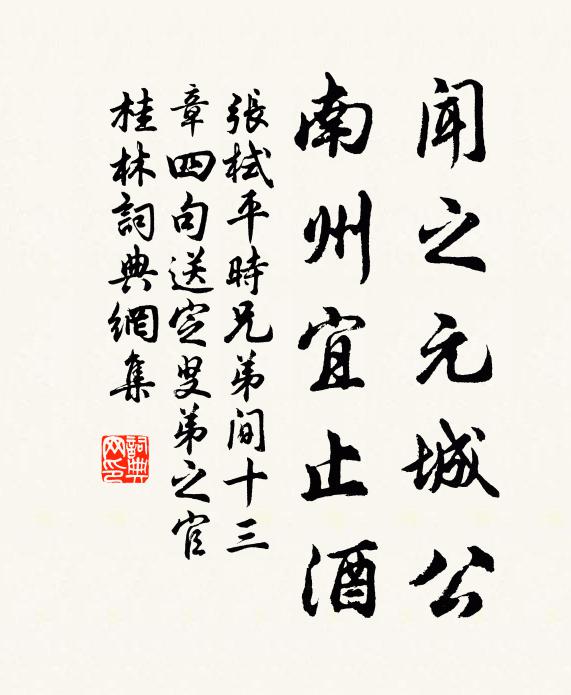 聞之元城公
南州宜止酒
張栻平時兄弟間十三
章四句送定叟弟之官
桂林詞典網集
詞典网印